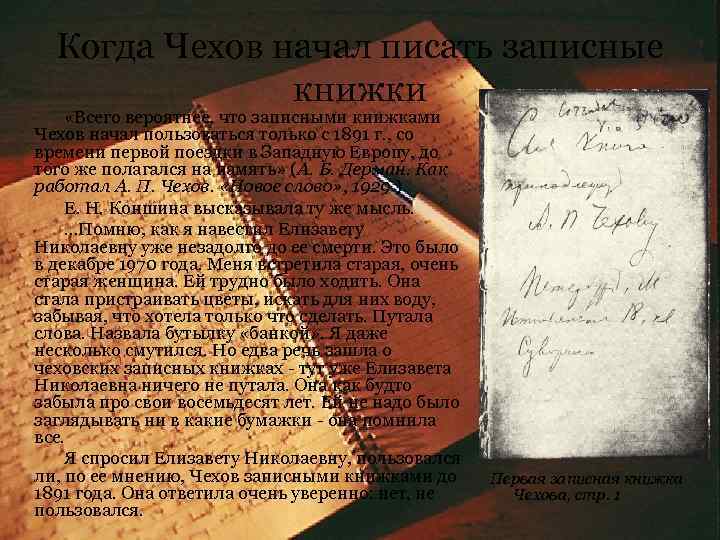 Когда Чехов начал писать записные
книжки
«Всего вероятнее, что записными книжками
Чехов начал пользоваться только с 1891 г., со
времени первой поездки в Западную Европу, до
того же полагался на память» (А. Б. Дерман. Как
работал А. П. Чехов. «Новое слово», 1929).
Е. Н. Коншина высказывала ту же мысль.
...Помню, как я навестил Елизавету
Николаевну уже незадолго до ее смерти. Это было
в декабре 1970 года. Меня встретила старая, очень
старая женщина. Ей трудно было ходить. Она
стала пристраивать цветы, искать для них воду,
забывая, что хотела только что сделать. Путала
слова. Назвала бутылку «банкой». Я даже
несколько смутился. Но едва речь зашла о
чеховских записных книжках - тут уже Елизавета
Николаевна ничего не путала. Она как будто
забыла про свои восемьдесят лет. Ей не надо было
заглядывать ни в какие бумажки - она помнила
все.
Я спросил Елизавету Николаевну, пользовался
ли, по ее мнению, Чехов записными книжками до
1891 года. Она ответила очень уверенно: нет, не
пользовался.
Сия Книга
принадлежит
А. П. Чехову
Петербург, М
18, кв
Суворина
Первая записная книжка
Чехова, стр. 1